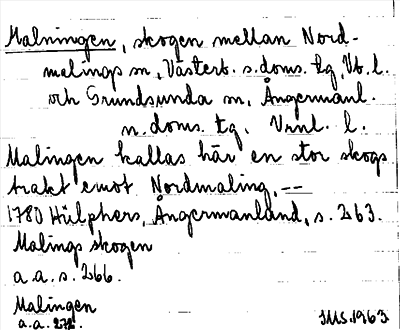 Malningen, skogen mellan Nord-
malings sn, Västerb. s. doms. tg, Vb. l.
och Grundsunda sn, Ångermanl.
n. doms. tg. Vrnl. l.
Malingen kallas här en stor skogs
trakt emot Nordmaling. --
1780 Hülphers, Ångermanland, s. 263.
Malings skogen
a.a. s. 266.
Malingen
a.a. 272.
IMS. 1963